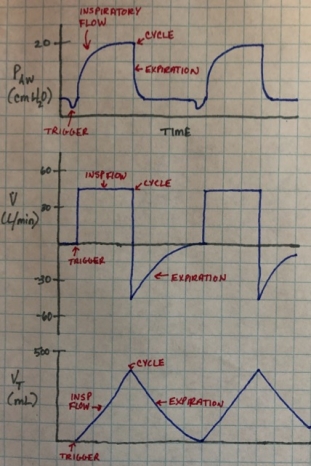 INSPIRATORY
FLOW
20
CYCLE
PAW
(cmH2O)
EXPIRATION
TRIGGER
TIME
60
INSP FLOW
CYCLE
V̇
(L/min)
30
TRIGGER
EXPIRATION
-30
-60
500
CYCLE
VT
(mL)
INSP
FLOW
EXPIRATION
TRIGGER